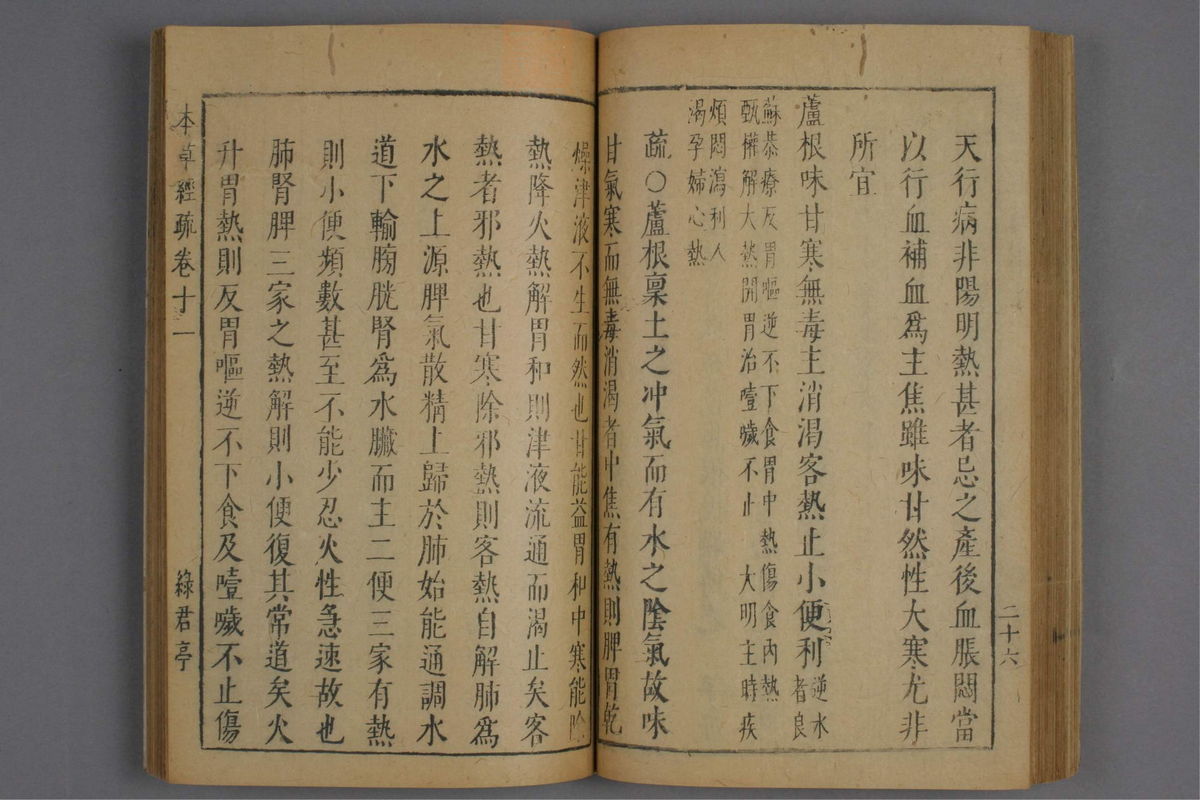 天行病非陽明熱甚者忌之產後血脹悶當
以行血補血爲主焦雖味甘然性大寒尤非
所宜
蘆根味甘寒無毒主消渴客熱止小便利逆水
者良
蘇恭療反胃嘔逆不下食胃中熱傷食內熱
甄權解大熱開胃治噎噦不止 大明主時疾
煩悶瀉利人
渴孕婦心熱
疏〇蘆根稟土之冲氣而有水之陰氣故味
甘氣寒而無毒消渴者中焦有熱則脾胃乾
二十六
燥津液不生而然也甘能益胃和中寒能除
熱降火熱解胃和則津液流通而渴止矣客
熱者邪熱也甘寒除邪熱則客熱自解肺爲
水之上源脾氣散精上歸於肺始能通調水
道下輸膀胱腎爲水臟而主二便三家有熱
則小便頻數甚至不能少忍火性急速故也
肺腎脾三家之熱解則小便復其常道矣火
升胃熱則反胃嘔逆不下食及噎噦不止傷
本草經疏卷十一
綠君亭